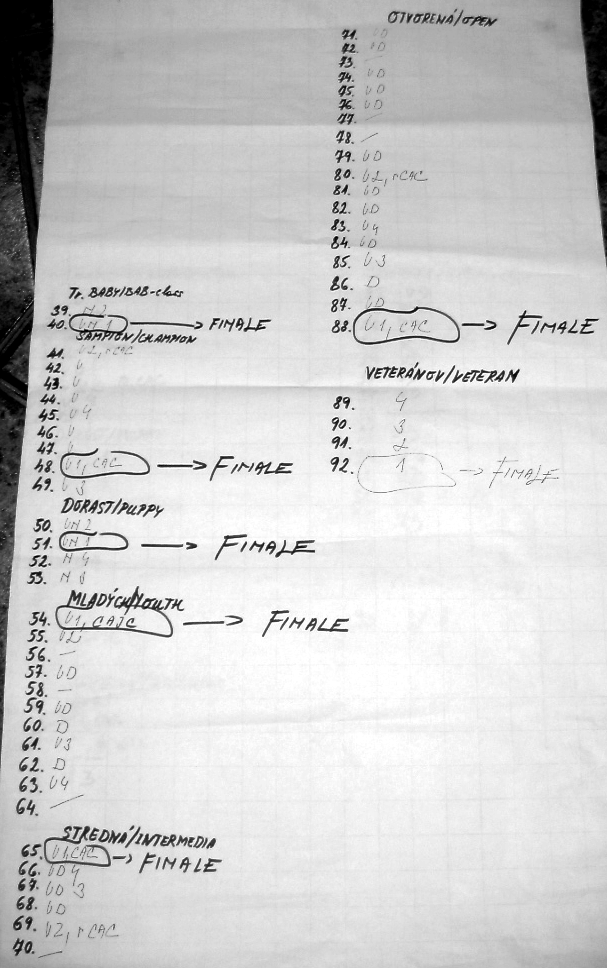 Tr. BABY/BAB-class
39. N 2
40. VN 1 → FINALE
ŠAMPION/CHAMPION
41. V2, rCAC
42. V
43. V
44. V
45. V4
46. V
47. V
48. V1, CAC → FINALE
49. V 3
DORAST/PUPPY
50. VN 2
51. VN 1 → FINALE
52. N 4
53. N
MLADÝCH/YOUTH
54. V1, CAJC → FINALE
55. V2
56. —
57. VD
58. —
59. VD
60. D
61. V3
62. D
63. V4
64. —
STREDNÁ/INTERMEDIA
65. V1, CAC → FINALE
66. VD 4
67. VD 3
68. VD
69. V2, rCAC
70. —
OTVORENÁ/OPEN
71. VD
72. VD
73. —
74. VD
75. VD
76. VD
77. —
78. —
79. VD
80. V2, rCAC
81. VD
82. VD
83. V4
84. VD
85. V3
86. D
87. VD
88. V1, CAC → FINALE
VETERÁNOV/VETERAN
89. 4
90. 3
91. 2
92. 1 → FINALE